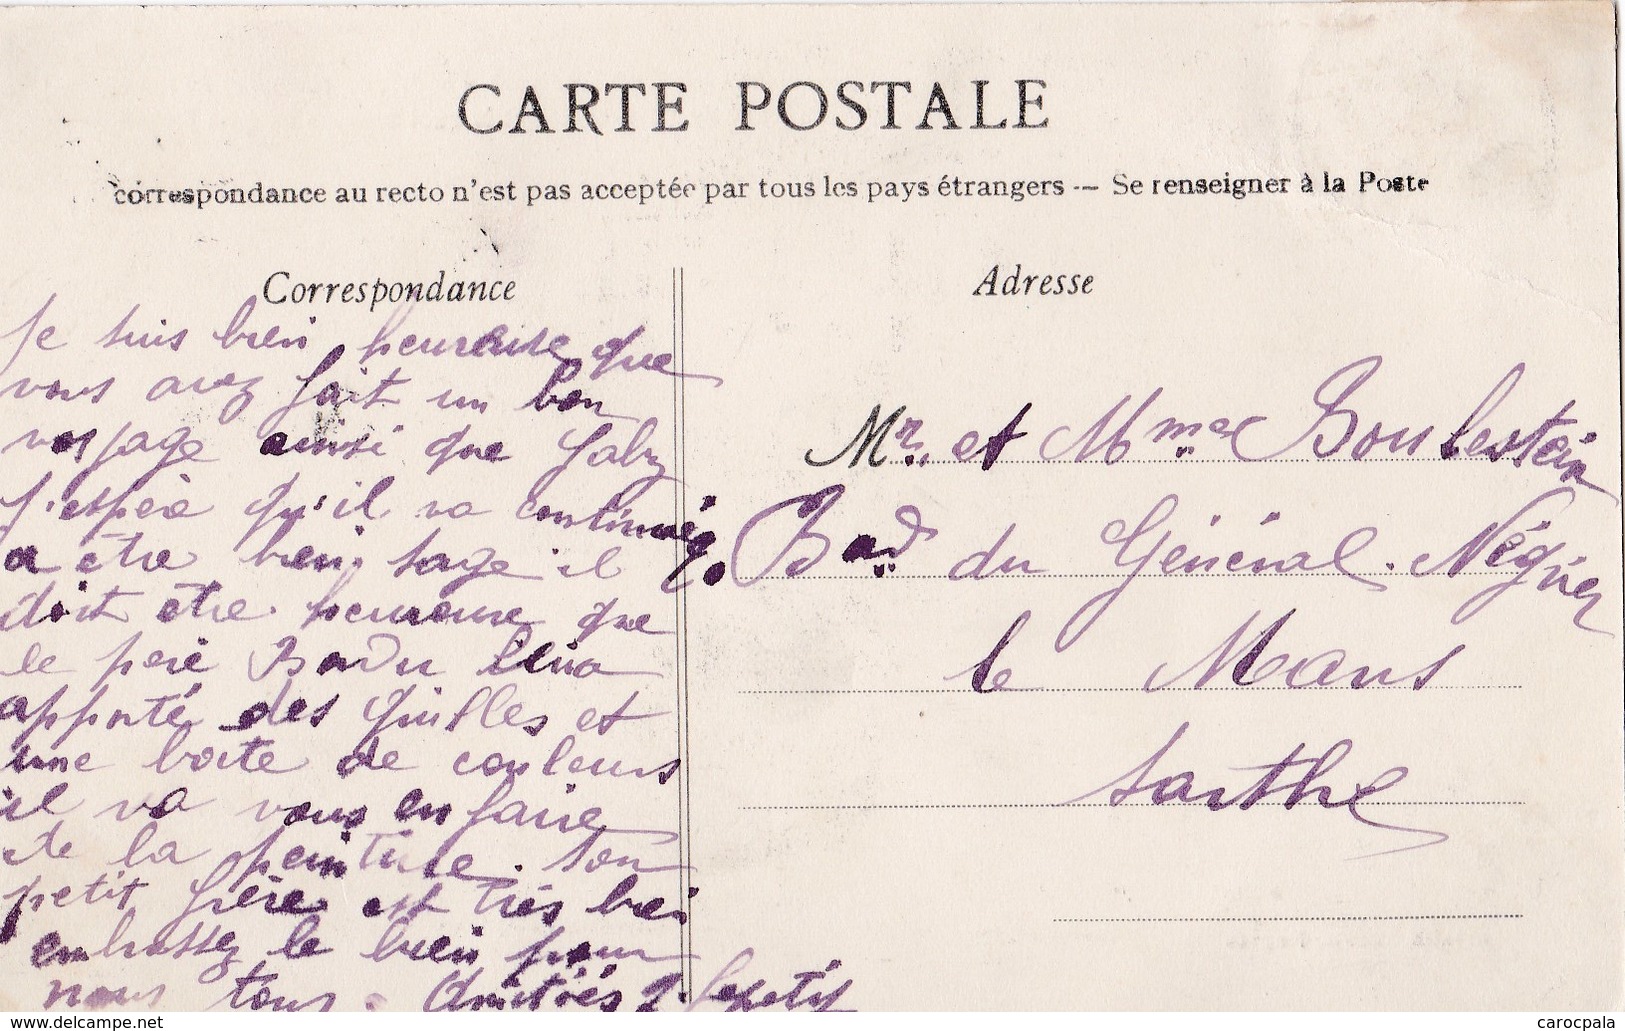 CARTE POSTALE
correspondance au recto n'est pas acceptée par tous les pays étrangers -- Se renseigner à la Poste
Correspondance
Je suis bien heureuse que
vous avez fait un bon
voyage ainsi que Gaby
j'espère qu'il va continuer
a être bien sage il
doit être heureuse que
le père lui a
apporté des quilles et
une boite de couleurs
il va vous en faire
de la peinture. Son
petit frère est très bien
embrassez le bien pour
nous tous. Amitiés
Adresse
Mr. et Mme Boulestein
Bard du Général Négrier
le Mans
Sarthe
carocpala